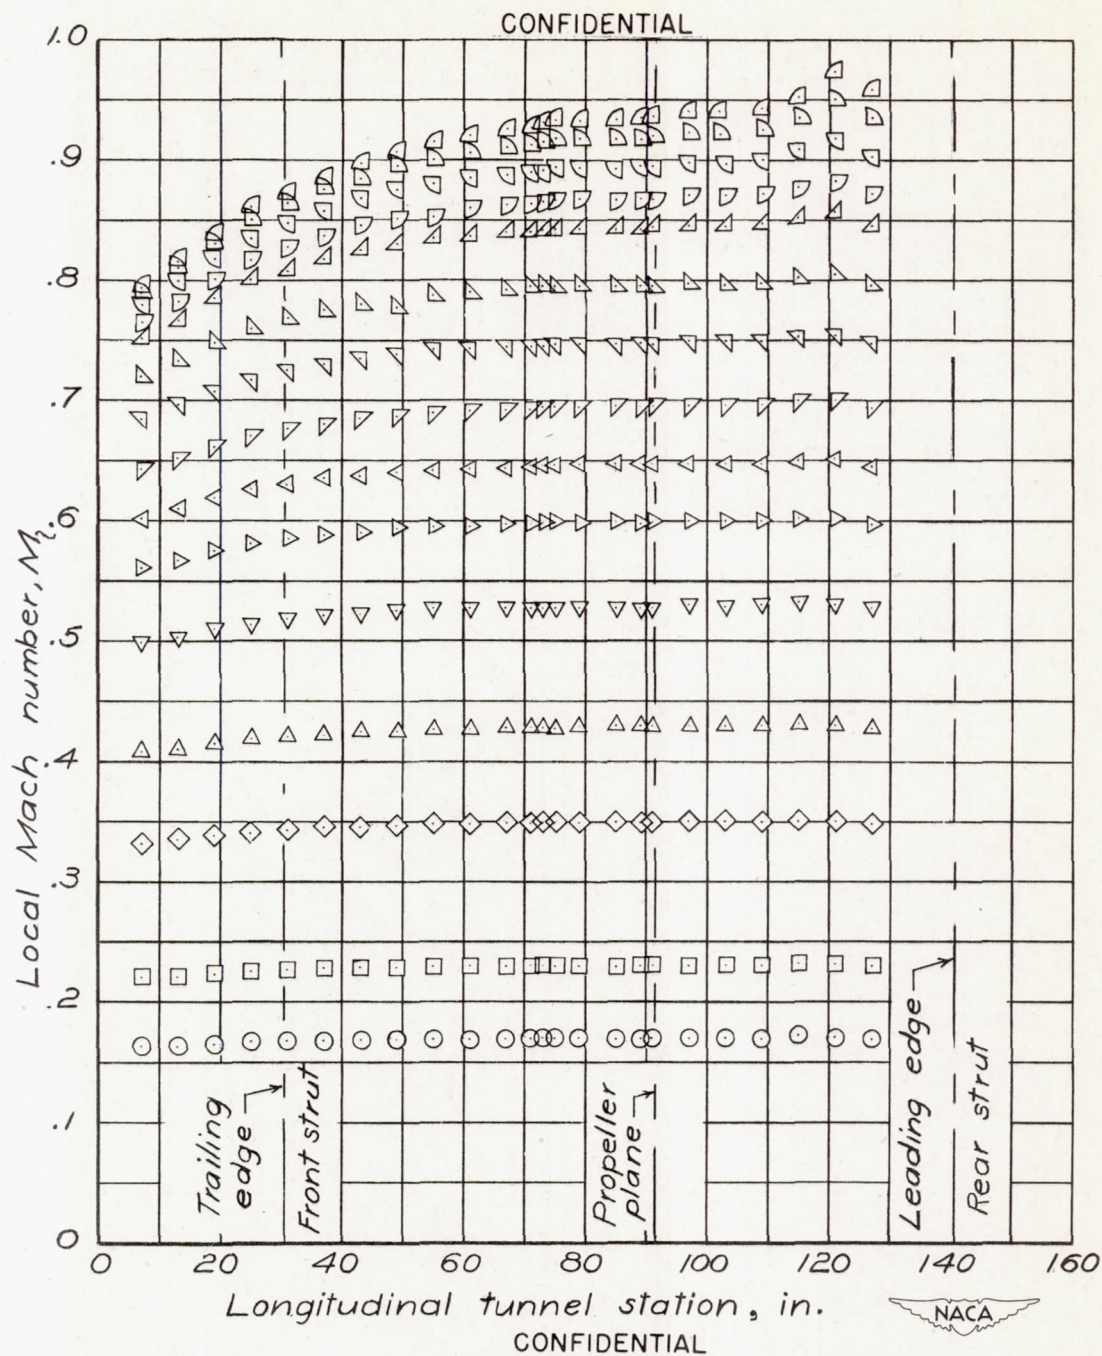 CONFIDENTIAL
1.0
.9
.8
.7
.6
.5
.4
.3
.2
.1
0
Local Mach number, Mₗ
Trailing
edge
Front strut
Propeller
plane
Leading edge
Rear strut
0 20 40 60 80 100 120 140 160
Longitudinal tunnel station, in.
NACA
CONFIDENTIAL